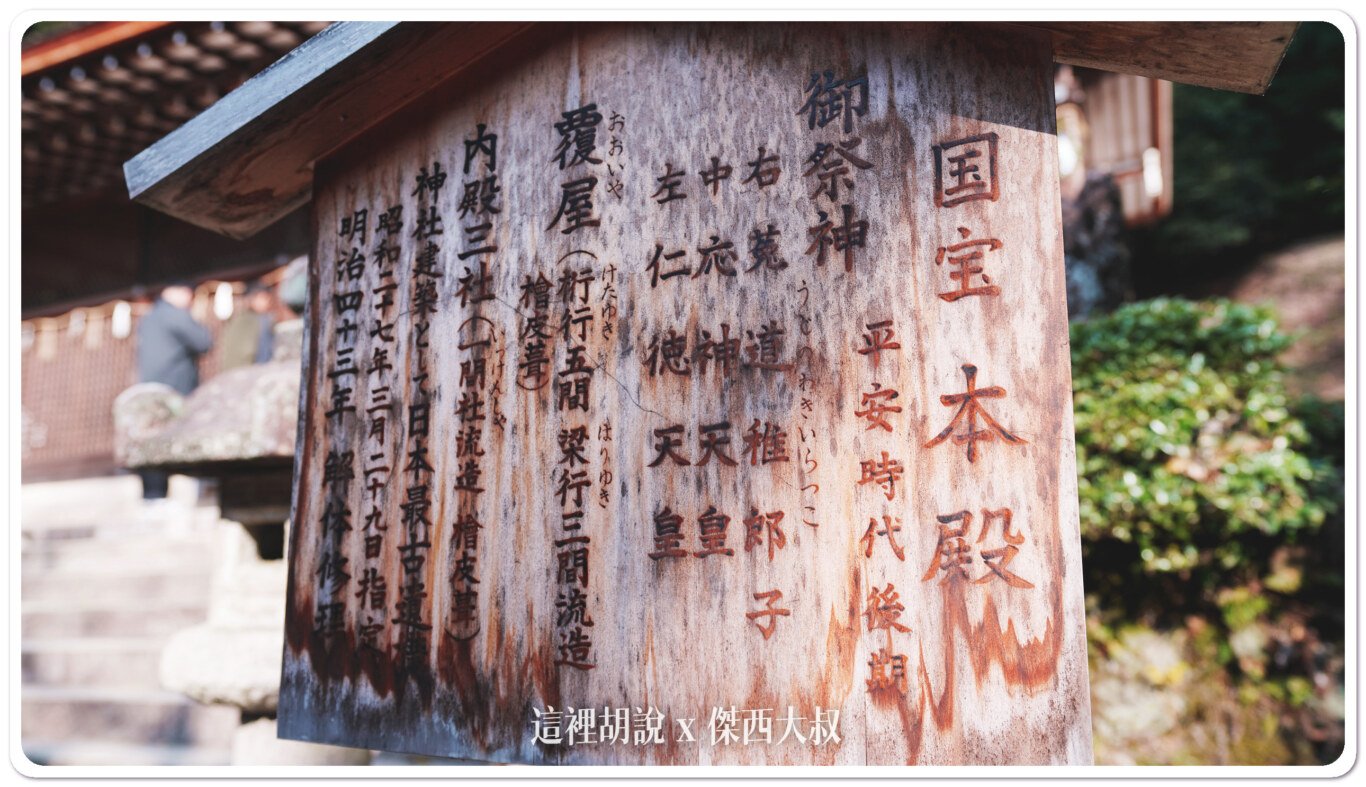 国宝 本殿
平安時代後期
御祭神
右 菟道稚郎子
うとのわきいらつこ
中 応神天皇
左 仁徳天皇
覆屋(桁行五間 梁行三間流造
おおいや けたゆき はりゆき
檜皮葺)
内殿三社(一間社流造 檜皮葺)
いっけんしゃ
神社建築として日本最古遺構
昭和二十七年三月二十九日指定
明治四十三年 解体修理
這裡胡說 x 傑西大叔